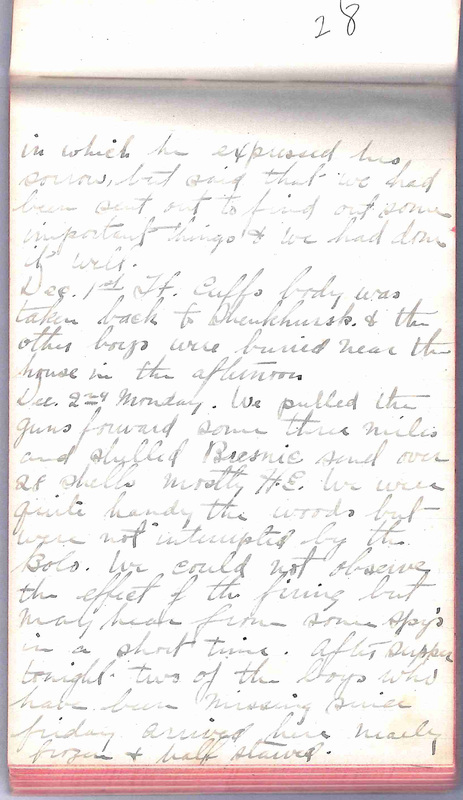 28
in which he expressed his
sorrow, but said that we had
been sent out to find out some
important things & we had done
it well.
Dec. 1st Lt. Cuffs body was
taken back to Shenkhursk. & the
other boys were buried near the
house in the afternoon
Dec. 2nd Monday. We pulled the
guns forward some three miles
and shelled send over
28 shells mostly H.E. We were
quite handy the woods but
were not interrupted by the
Bolo. We could not observe
the effect of the firing but
may hear from some spy's
in a short time. After supper
tonight two of the boys who
have been missing since
friday arrived here nearly
frozen & half starved.